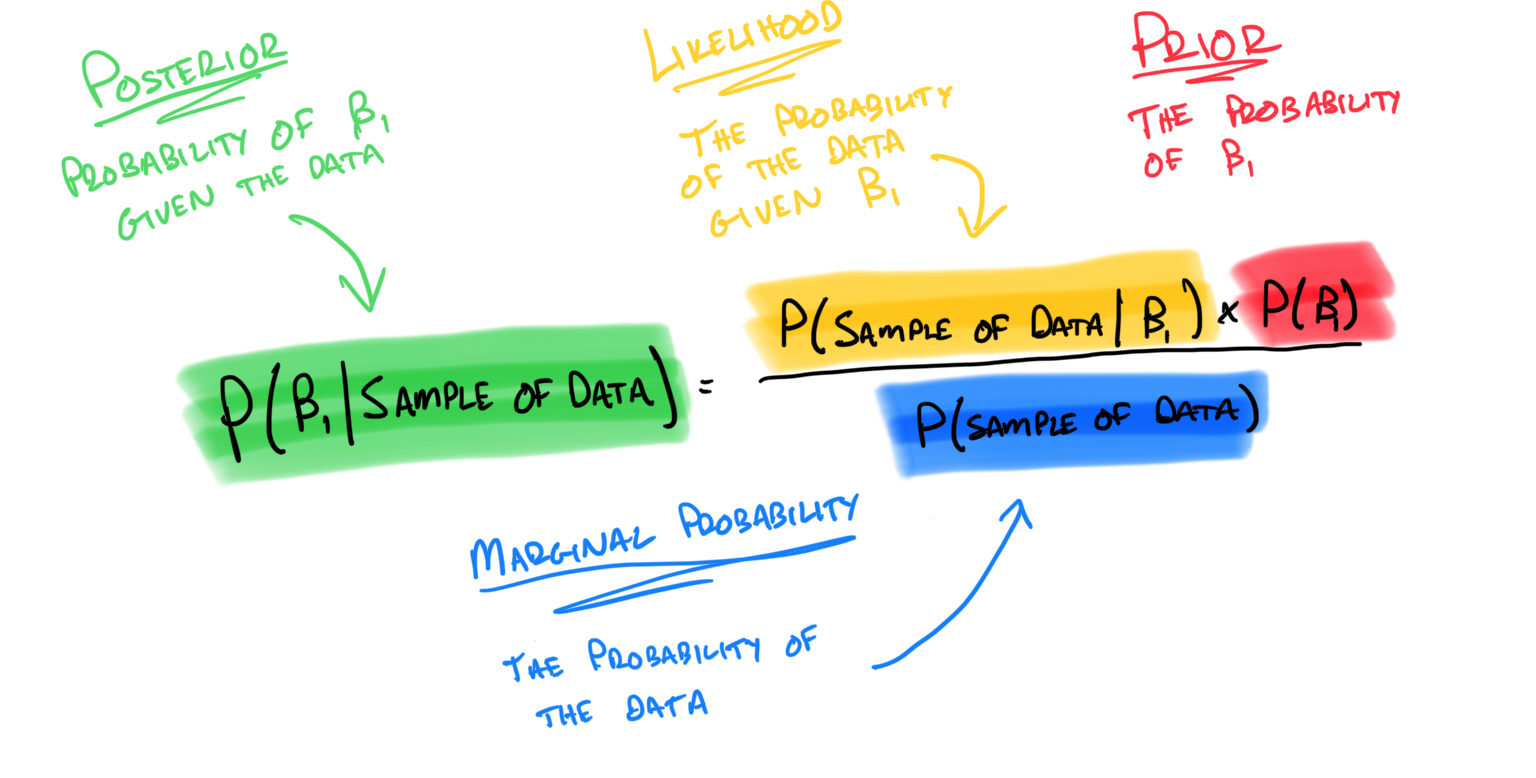 POSTERIOR
PROBABILITY OF β₁
GIVEN THE DATA
LIKELIHOOD
THE PROBABILITY
OF THE DATA
GIVEN β₁
PRIOR
THE PROBABILITY
OF β₁
P(β₁|SAMPLE OF DATA) = P(SAMPLE OF DATA|β₁) × P(β₁)
P(SAMPLE OF DATA)
MARGINAL PROBABILITY
THE PROBABILITY OF
THE DATA